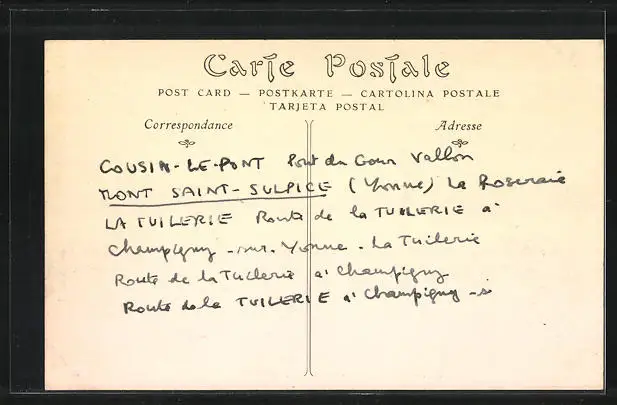 Carte Postale
POST CARD — POSTKARTE — CARTOLINA POSTALE
TARJETA POSTAL
Correspondance
Adresse
COUSIN-LE-PONT Pont du Gour Vallon
MONT SAINT-SULPICE (Yonne) La Roseraie
LA TUILERIE Route de la TUILERIE a'
Champigny-sur-Yonne. La Tuilerie
Route de la Tuilerie a' Champigny
Route de la TUILERIE a' Champigny-s